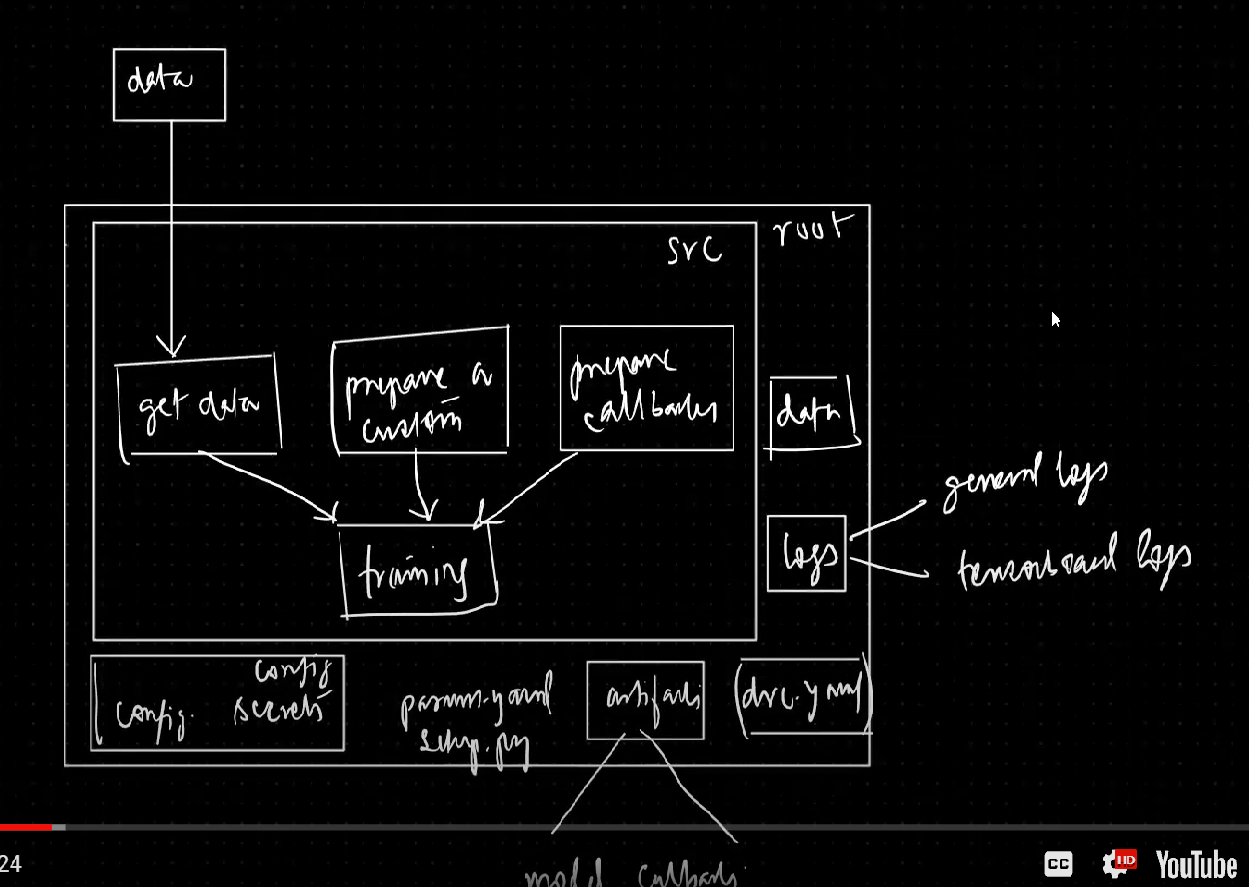 data
root
src
get data
prepare a
custom
prepare
callbacks
data
general logs
training
logs
tensorboard logs
config
config. secrets
param.yaml
setup.py
artifacts
dvc.yaml
model callbacks
24
CC
HD
YouTube